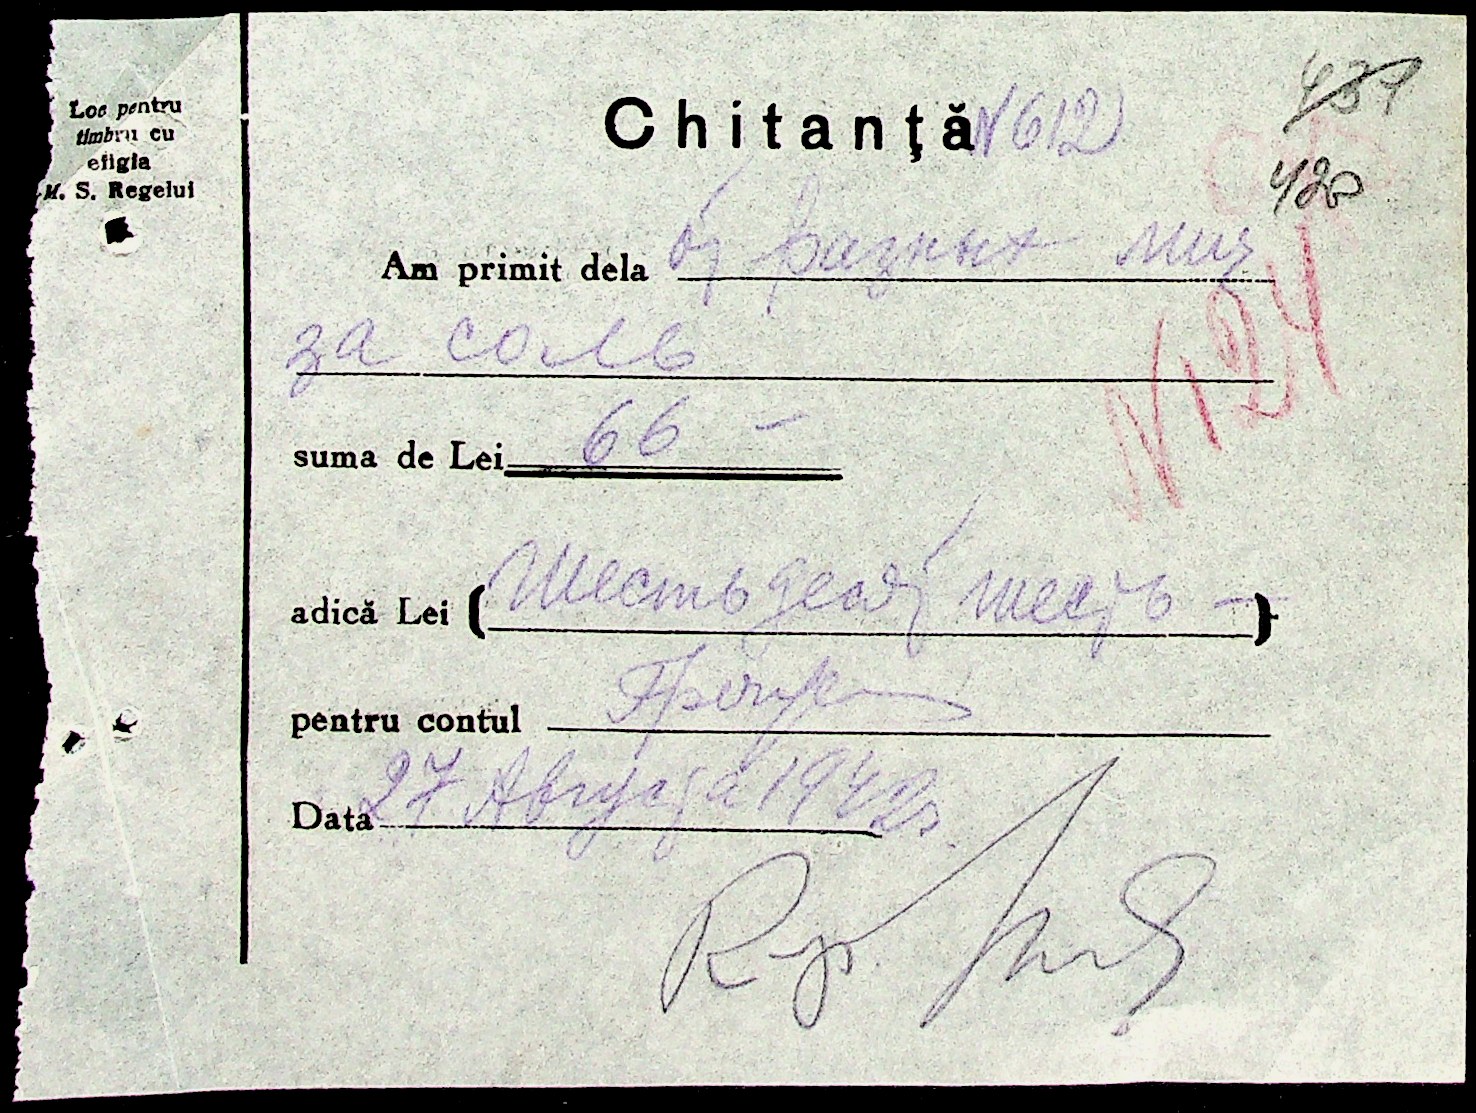 Loc pentru
timbru cu
efigia
M. S. Regelui
Chitanţă N 612
431
420
N 124
Am primit dela от разных лиц
за соль
suma de Lei 66 —
adică Lei (Шестьдесят шесть —)
pentru contul
Data 27 Августа 1942 г.